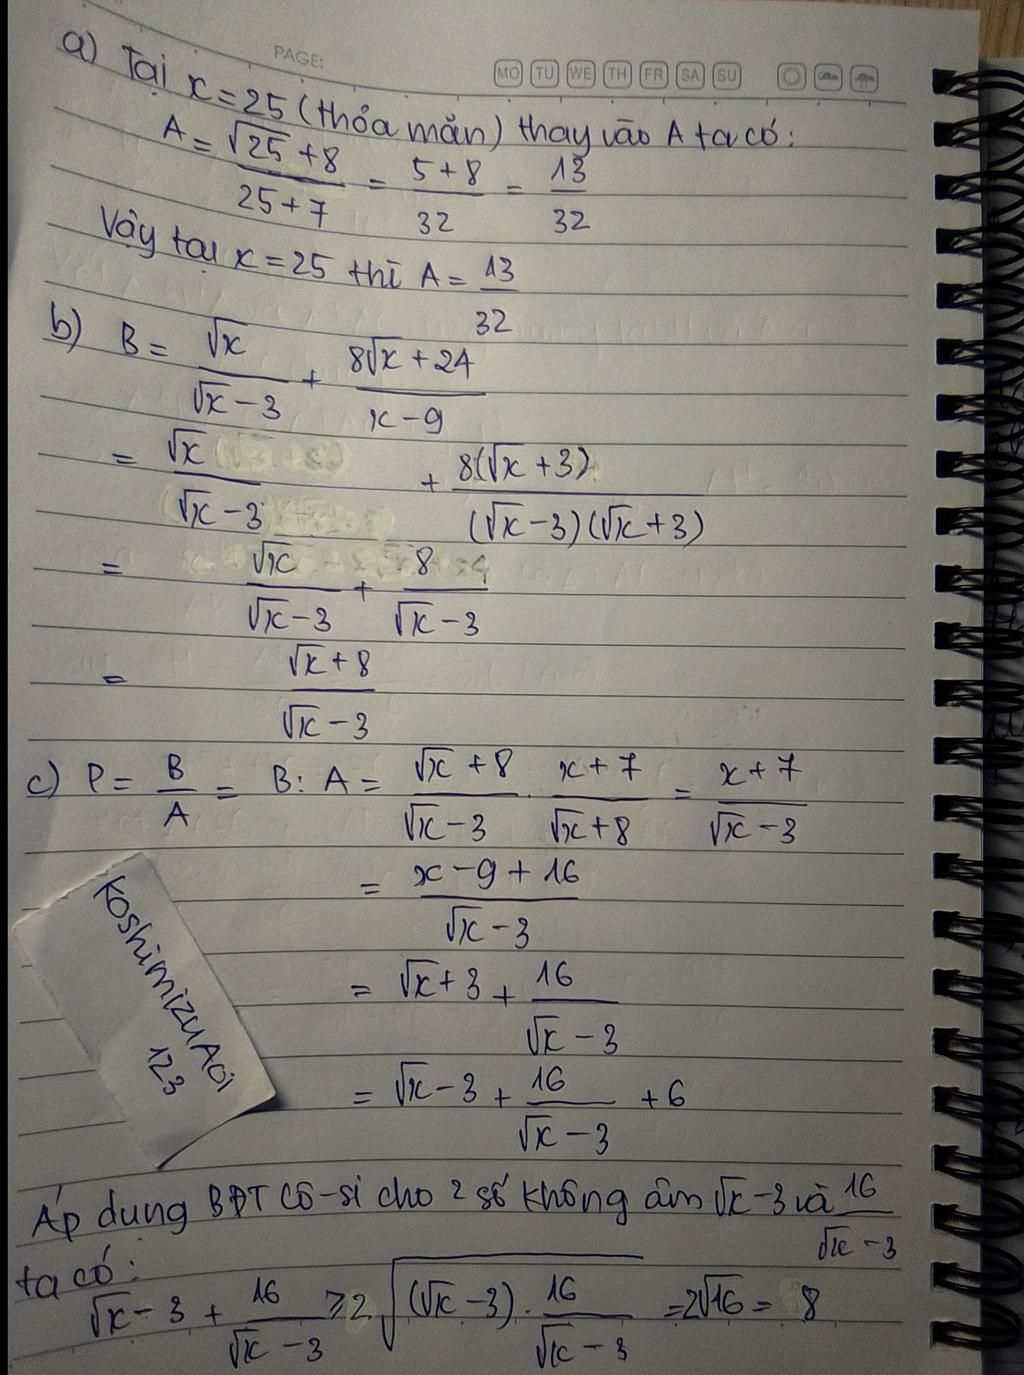 PAGE:
MO TU WE TH FR SA SU
a) Tại x = 25 (thỏa mãn) thay vào A ta có:
A = \frac{\sqrt{25} + 8}{25 + 7} = \frac{5 + 8}{32} = \frac{13}{32}
Vậy tại x = 25 thì A = \frac{13}{32}
b) B = \frac{\sqrt{x}}{\sqrt{x} - 3} + \frac{8\sqrt{x} + 24}{x - 9}
= \frac{\sqrt{x}}{\sqrt{x} - 3} + \frac{8(\sqrt{x} + 3)}{(\sqrt{x} - 3)(\sqrt{x} + 3)}
= \frac{\sqrt{x}}{\sqrt{x} - 3} + \frac{8}{\sqrt{x} - 3}
= \frac{\sqrt{x} + 8}{\sqrt{x} - 3}
c) P = \frac{B}{A} = B : A = \frac{\sqrt{x} + 8}{\sqrt{x} - 3} . \frac{x + 7}{\sqrt{x} + 8} = \frac{x + 7}{\sqrt{x} - 3}
= \frac{x - 9 + 16}{\sqrt{x} - 3}
= \sqrt{x} + 3 + \frac{16}{\sqrt{x} - 3}
= \sqrt{x} - 3 + \frac{16}{\sqrt{x} - 3} + 6
Koshimizu Aoi
123
Áp dụng BĐT Cô-si cho 2 số không âm \sqrt{x} - 3 và \frac{16}{\sqrt{x} - 3}
ta có:
\sqrt{x} - 3 + \frac{16}{\sqrt{x} - 3} ≥ 2\sqrt{(\sqrt{x} - 3) . \frac{16}{\sqrt{x} - 3}} = 2\sqrt{16} = 8